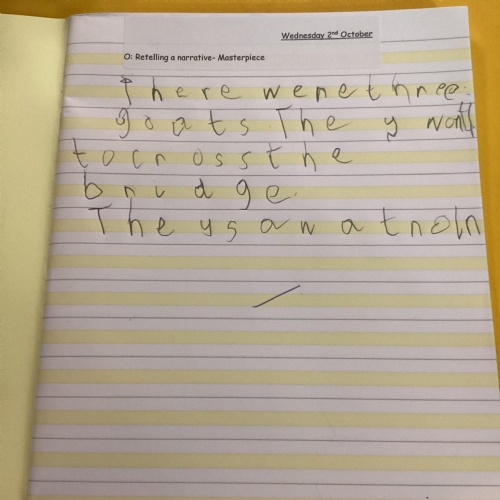 Wednesday 2nd October
O: Retelling a narrative- Masterpiece
There were three.
goats. They wont
to cross the
bridge.
They saw a troln